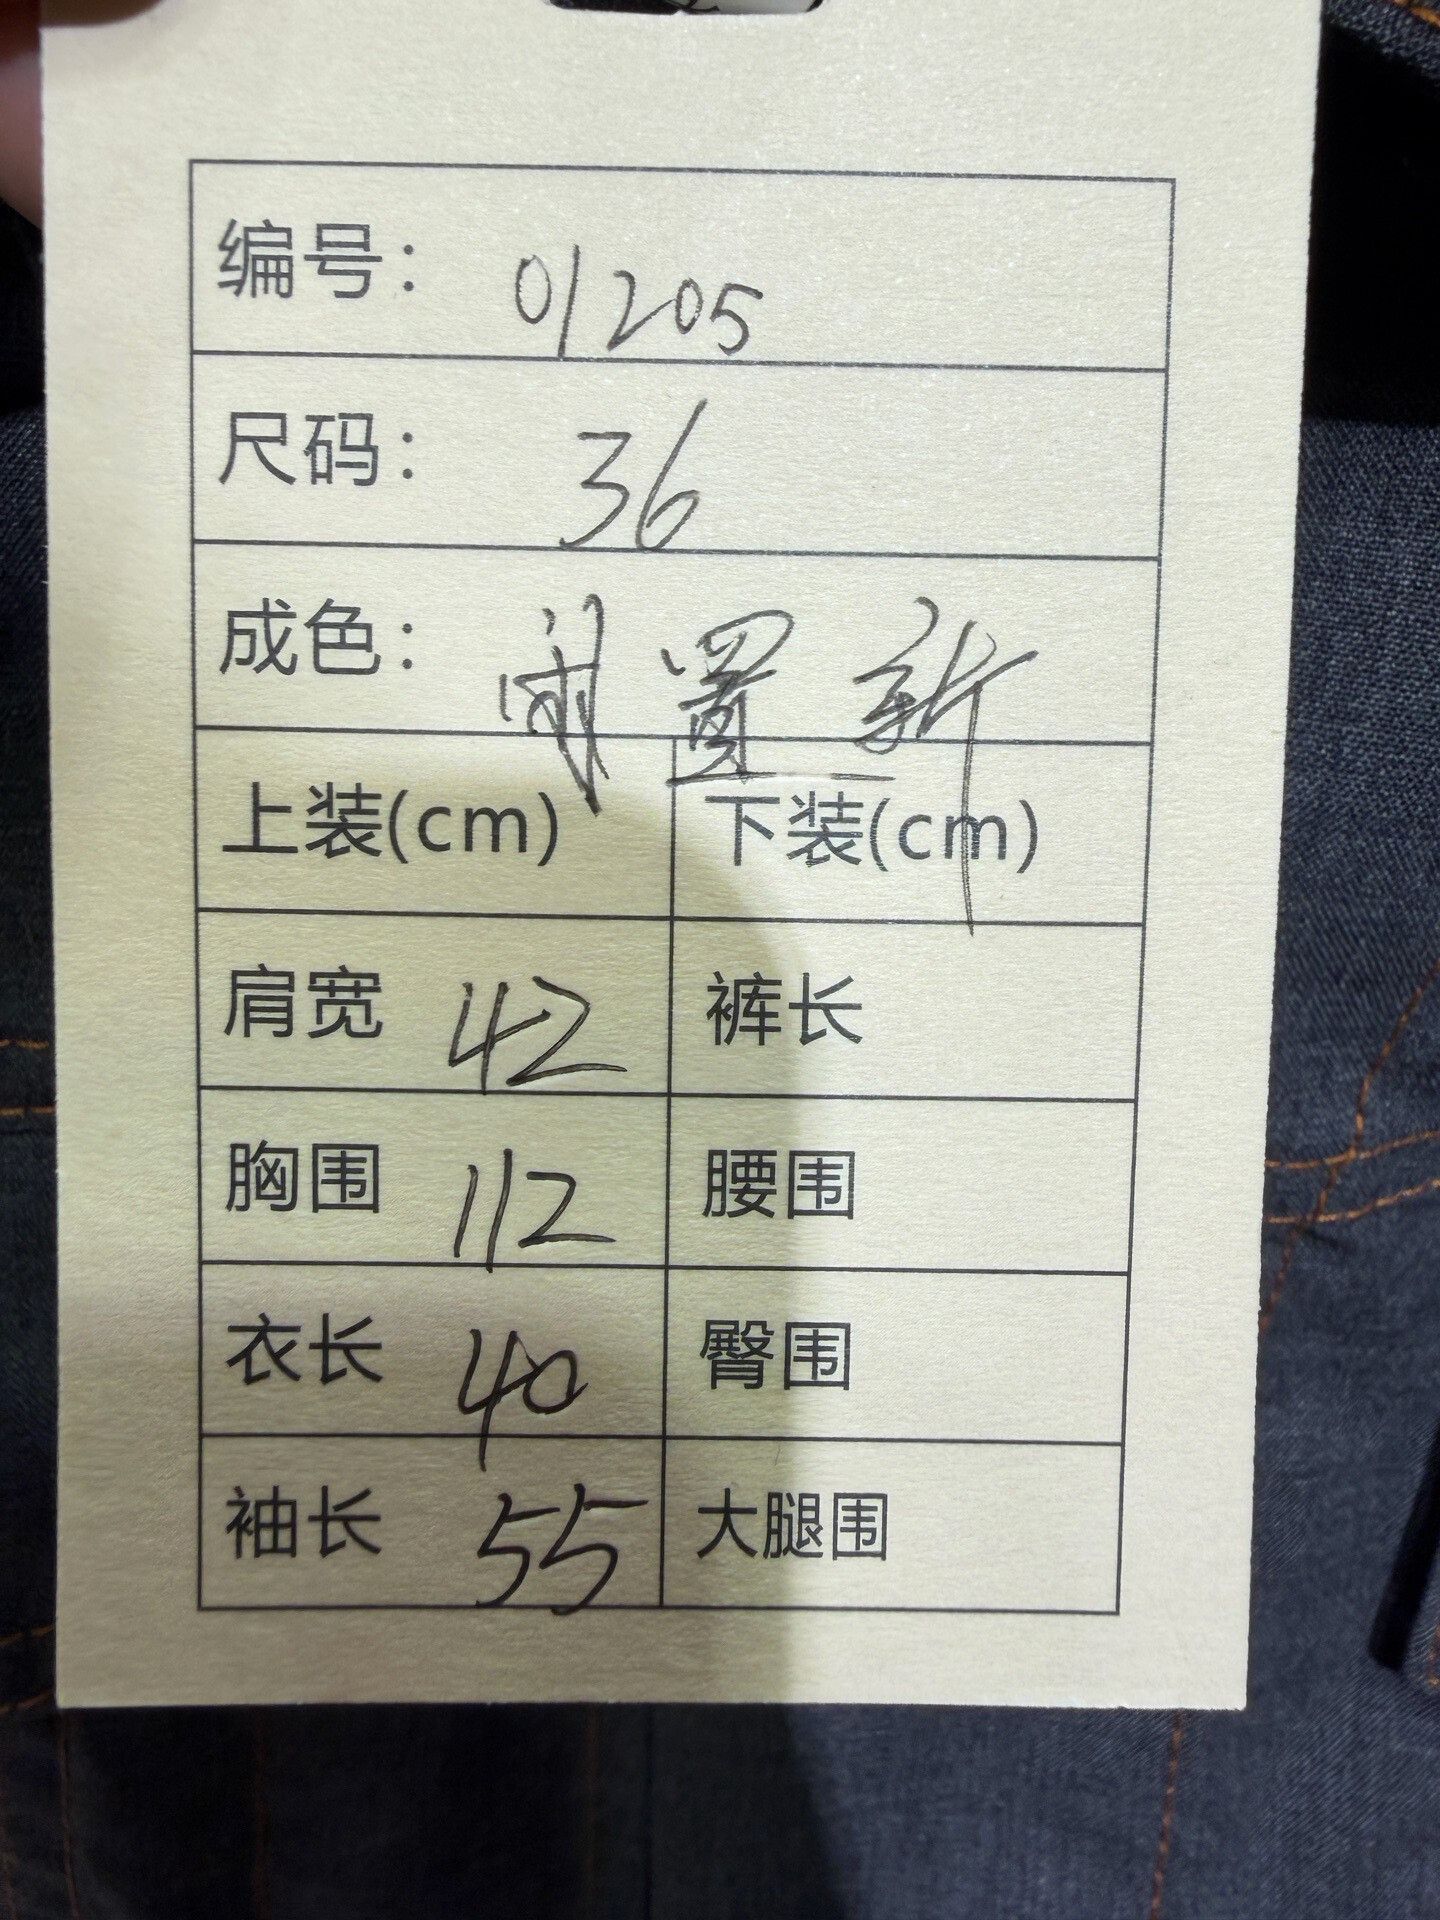 编号： 01205
尺码： 36
成色： 闲置新
上装(cm) 下装(cm)
肩宽 42 裤长
胸围 112 腰围
衣长 40 臀围
袖长 55 大腿围